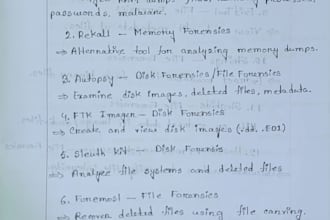 RAM dumps
passwords, malware.
2. Rekall — Memory Forensics
⇒ Alternative tool for analysing memory dumps.
3. Autopsy — Disk Forensics/File Forensics
⇒ Examine disk images, deleted files, metadata.
4. FTK Imager — Disk Forensics
⇒ Create and view disk images (.dd, .E01)
5. Sleuth Kit — Disk Forensis
⇒ Analyze file systems and deleted files
6. Foremost — File Forensics
⇒ Recover deleted files using file carving.